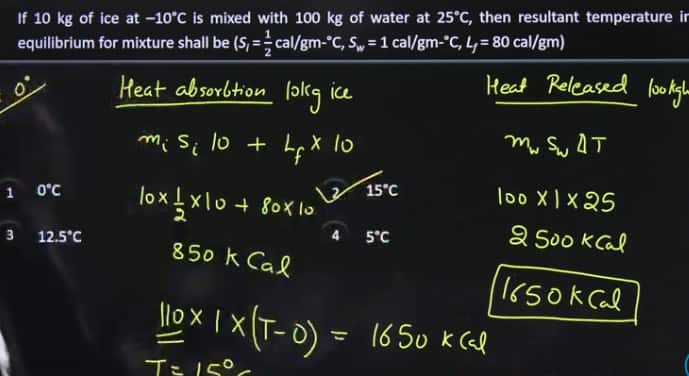 If 10 kg of ice at –10°C is mixed with 100 kg of water at 25°C, then resultant temperature in
equilibrium for mixture shall be (Sᵢ = 1/2 cal/gm-°C, S_w = 1 cal/gm-°C, L_f = 80 cal/gm)
0°
Heat absorbtion 10kg ice
Heat Released 100kg
mᵢ Sᵢ 10 + L_f × 10
m_w S_w ΔT
1 0°C
2 15°C
10 × 1/2 × 10 + 80 × 10
100 × 1 × 25
3 12.5°C
4 5°C
850 k Cal
2500 kCal
1650 kCal
110 × 1 × (T-0) = 1650 k Cal
T = 15°C